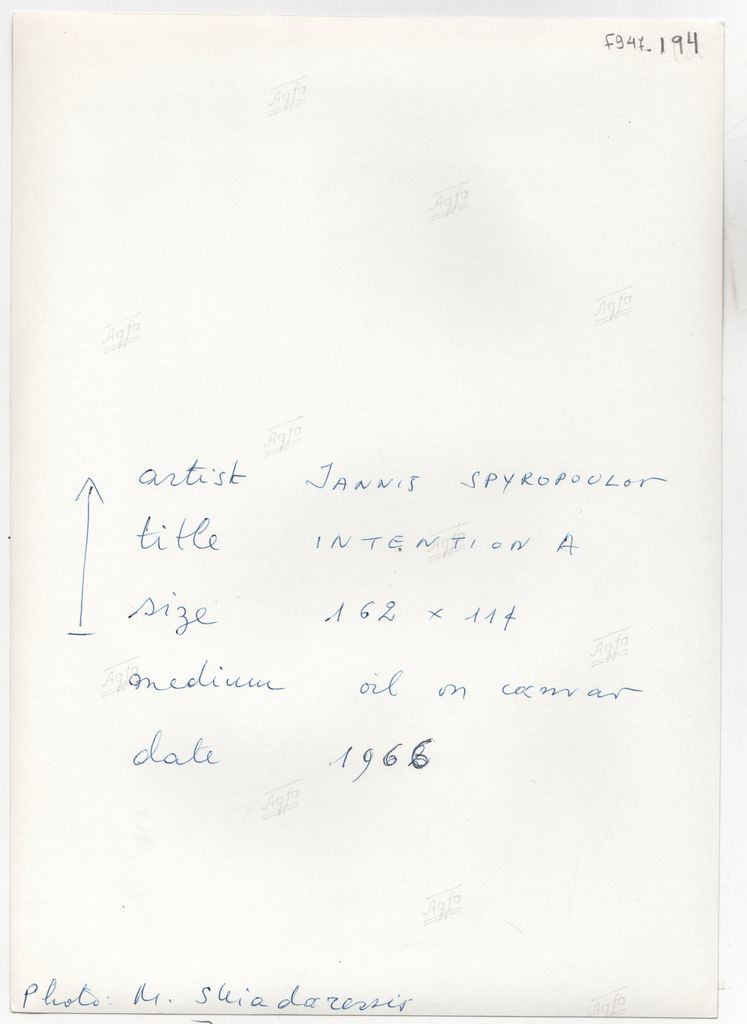 F947-194
Agfa
Agfa
Agfa
Agfa
Agfa
artist JANNIS SPYROPOULOS
title INTENTION A
Agfa
size 162 x 114
Agfa
Agfa
medium oil on canvas
date 1966
Agfa
Agfa
Photo: M. Skiadaressis
Agfa